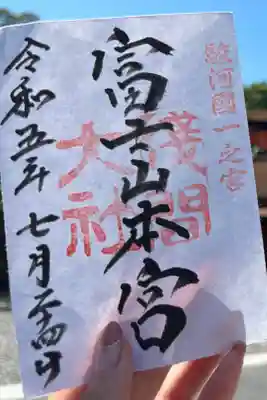 駿河國一之宮
富士山本宮
浅間
大社
令和五年七月二十四日